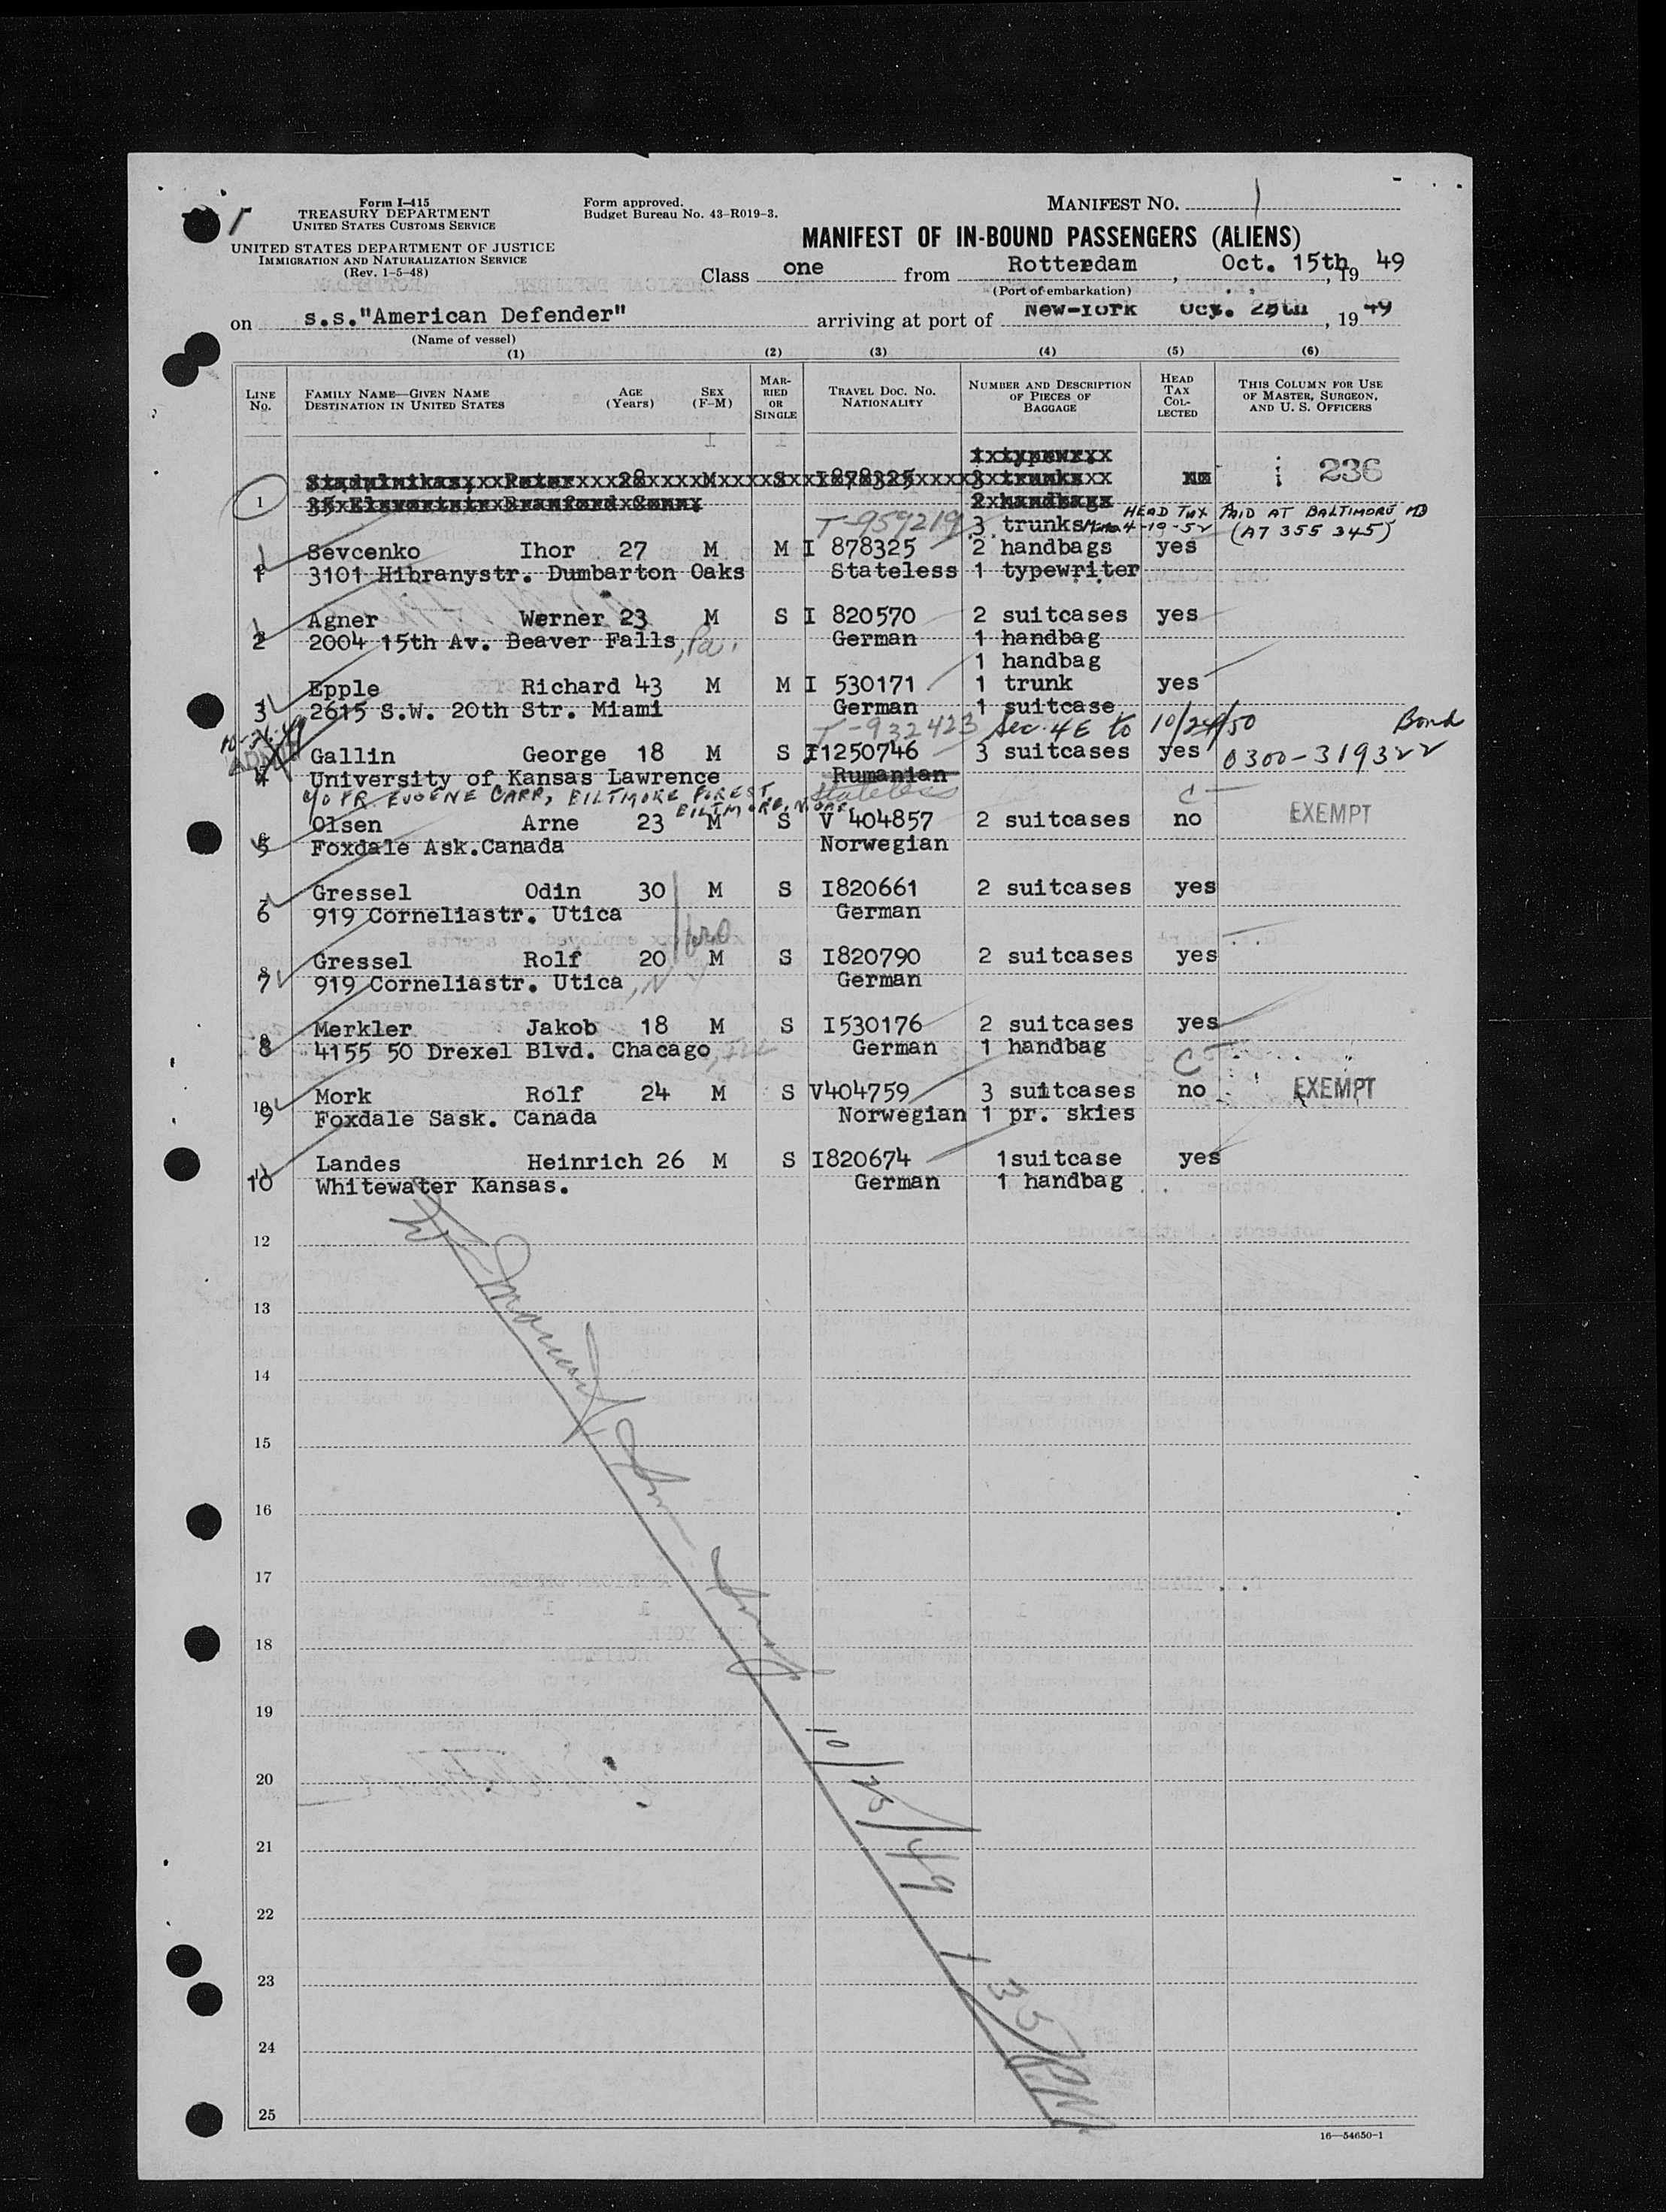 Form I-415
TREASURY DEPARTMENT
UNITED STATES CUSTOMS SERVICE
UNITED STATES DEPARTMENT OF JUSTICE
IMMIGRATION AND NATURALIZATION SERVICE
(Rev. 1-5-48)
Form approved.
Budget Bureau No. 43-R019-3.
MANIFEST NO. 1
MANIFEST OF IN-BOUND PASSENGERS (ALIENS)
Class one from Rotterdam, Oct. 15th, 19 49
(Port of embarkation)
on s.s."American Defender" arriving at port of New-York Oct. 25th, 19 49
(Name of vessel)
(1) (2) (3) (4) (5) (6)
LINE No. FAMILY NAME—GIVEN NAME DESTINATION IN UNITED STATES AGE (Years) SEX (F-M) MARRIED OR SINGLE TRAVEL DOC. NO. NATIONALITY NUMBER AND DESCRIPTION OF PIECES OF BAGGAGE HEAD TAX COLLECTED THIS COLUMN FOR USE OF MASTER, SURGEON, AND U. S. OFFICERS
Peter 28 M S I878325 3 trunks no 236
1 Branford Conn. 2 handbags
HEAD TAX PAID AT BALTIMORE MD
T-959219 3 trunks 4-19-52 (A7 355 345)
Sevcenko Ihor 27 M M I 878325 2 handbags yes
1 3101 Hibranystr. Dumbarton Oaks Stateless 1 typewriter
Agner Werner 23 M S I 820570 2 suitcases yes
2 2004 15th Av. Beaver Falls, Pa. German 1 handbag
1 handbag
Epple Richard 43 M M I 530171 1 trunk yes
3 2615 S.W. 20th Str. Miami German 1 suitcase
T-932423 Sec. 4E to 10/24/50 Bond
Gallin George 18 M S I1250746 3 suitcases yes 0300-319322
4 University of Kansas Lawrence Rumanian
c/o FR EUGENE CARR, BILTMORE FOREST Stateless
BILTMORE, N. CAR. C
Olsen Arne 23 M S V 404857 2 suitcases no EXEMPT
5 Foxdale Ask.Canada Norwegian
Gressel Odin 30 M S I820661 2 suitcases yes
6 919 Corneliastr. Utica German
bro
Gressel Rolf 20 M S I820790 2 suitcases yes
7 919 Corneliastr. Utica, N.Y. German
Merkler Jakob 18 M S I530176 2 suitcases yes
8 4155 50 Drexel Blvd. Chacago, Ill German 1 handbag
C
Mork Rolf 24 M S V404759 3 suitcases no EXEMPT
9 Foxdale Sask. Canada Norwegian 1 pr. skies
Landes Heinrich 26 M S I820674 1suitcase yes
10 Whitewater Kansas. German 1 handbag
12
13
14
15
16
17
18
19
20
21
22
23
24
25
10/25/49 135 PM
16—54650-1